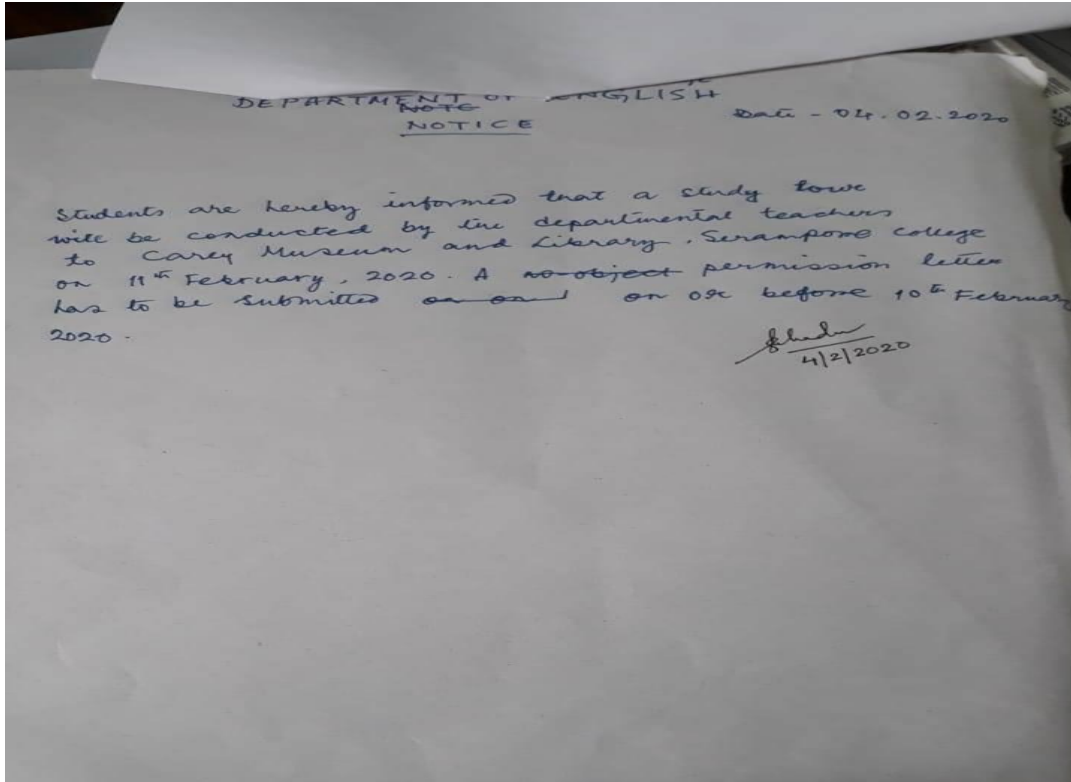 DEPARTMENT OF ENGLISH
NOTE
NOTICE
Date - 04.02.2020
Students are hereby informed that a study tour
will be conducted by the departmental teachers
to Carey Museum and Library, Serampore College
on 11th February, 2020. A no object permission letter
has to be submitted on or before 10th February
2020.
4/2/2020